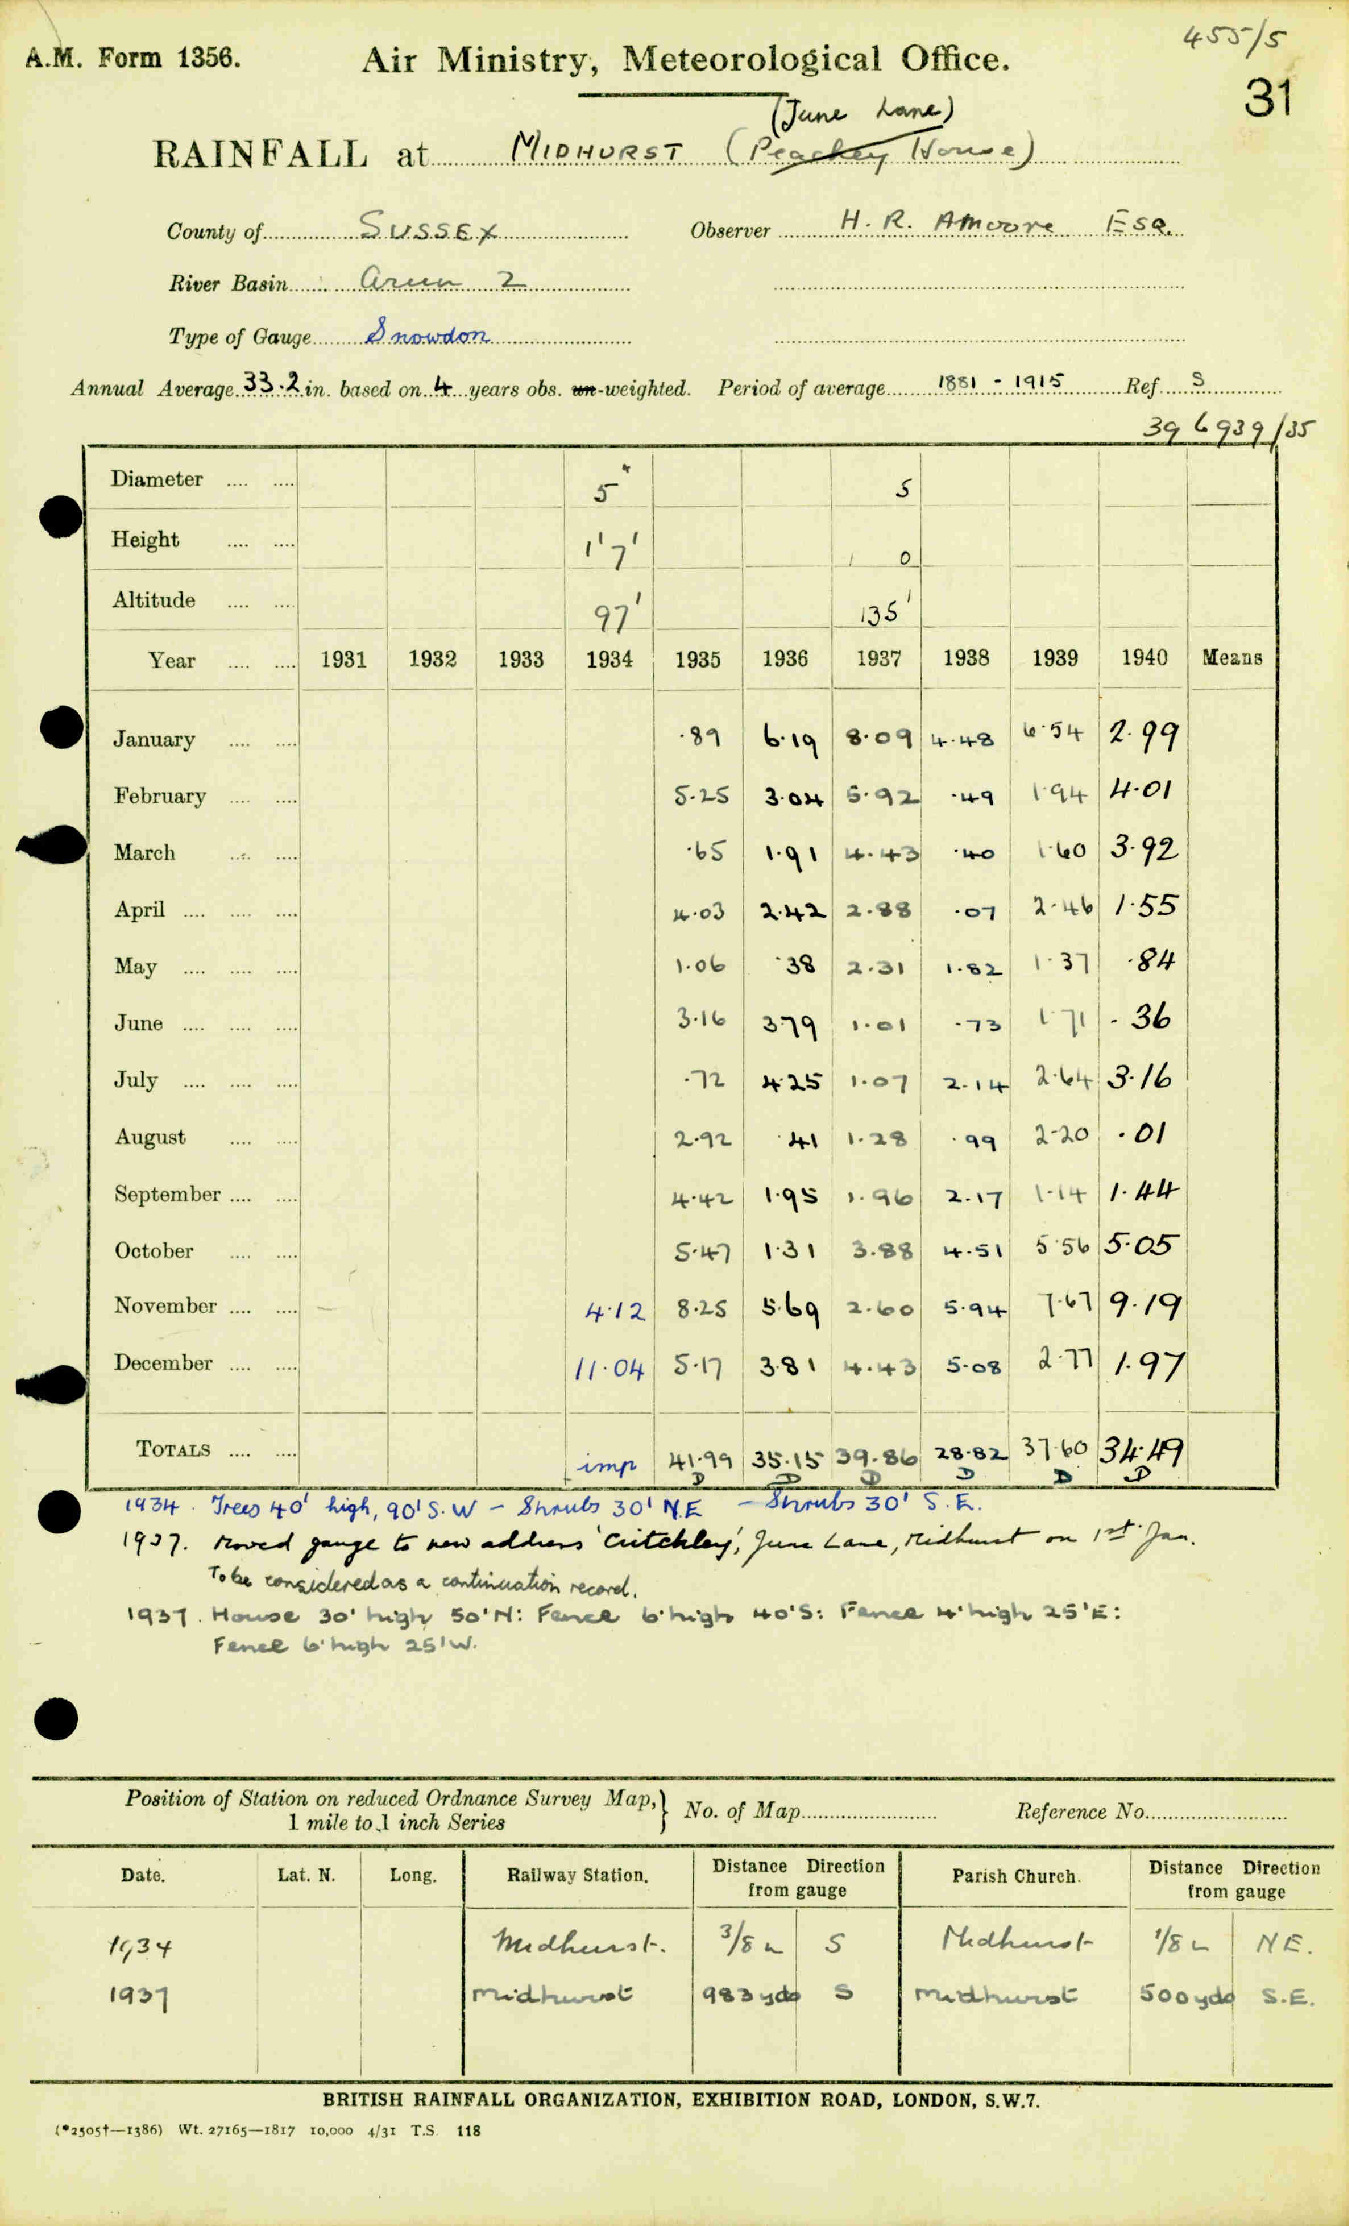 455/5
A.M. Form 1356. Air Ministry, Meteorological Office.
31
(June Lane)
RAINFALL at MIDHURST (Peachey House)
County of SUSSEX Observer H. R. Amoore Esq.
River Basin Arun 2
Type of Gauge Snowdon
Annual Average 33.2 in. based on 4 years obs. un-weighted. Period of average 1881 - 1915 Ref. S
396939/35
Diameter .... .... 5" 5
Height .... .... 1'7' 0
Altitude .... .... 97' 135'
Year .... .... 1931 1932 1933 1934 1935 1936 1937 1938 1939 1940 Means
January .... .... .89 6.19 8.09 4.48 6.54 2.99
February .... .... 5.25 3.04 5.92 .49 1.94 4.01
March .... .... .65 1.91 4.43 .40 1.60 3.92
April .... .... .... 4.03 2.42 2.88 .07 2.46 1.55
May .... .... .... 1.06 .38 2.31 1.82 1.37 .84
June .... .... .... 3.16 3.79 1.01 .73 1.71 .36
July .... .... .... .72 4.25 1.07 2.14 2.64 3.16
August .... .... 2.92 .41 1.28 .99 2.20 .01
September .... .... 4.42 1.95 1.96 2.17 1.14 1.44
October .... .... 5.47 1.31 3.88 4.51 5.56 5.05
November .... .... 4.12 8.25 5.69 2.60 5.94 7.67 9.19
December .... .... 11.04 5.17 3.81 4.43 5.08 2.77 1.97
TOTALS .... .... imp 41.99 35.15 39.86 28.82 37.60 34.49
D D D D D D
1934. Trees 40' high, 90' S.W - Shrubs 30' N.E - Shrubs 30' S.E.
1937. Moved gauge to new address 'Critchley', June Lane, Midhurst on 1st Jan.
To be considered as a continuation record.
1937. House 30' high 50'N: Fence 6'high 40'S: Fence 4'high 25'E:
Fence 6'high 25'W.
Position of Station on reduced Ordnance Survey Map,} No. of Map Reference No.
1 mile to 1 inch Series
Date. Lat. N. Long. Railway Station. Distance Direction from gauge Parish Church. Distance Direction from gauge
1934 Midhurst. 3/8 S Midhurst 1/8 NE.
1937 Midhurst 983 yds S Midhurst 500 yds S.E.
BRITISH RAINFALL ORGANIZATION, EXHIBITION ROAD, LONDON, S.W.7.
(*2505†—1386) Wt. 27165—1817 10,000 4/31 T.S. 118